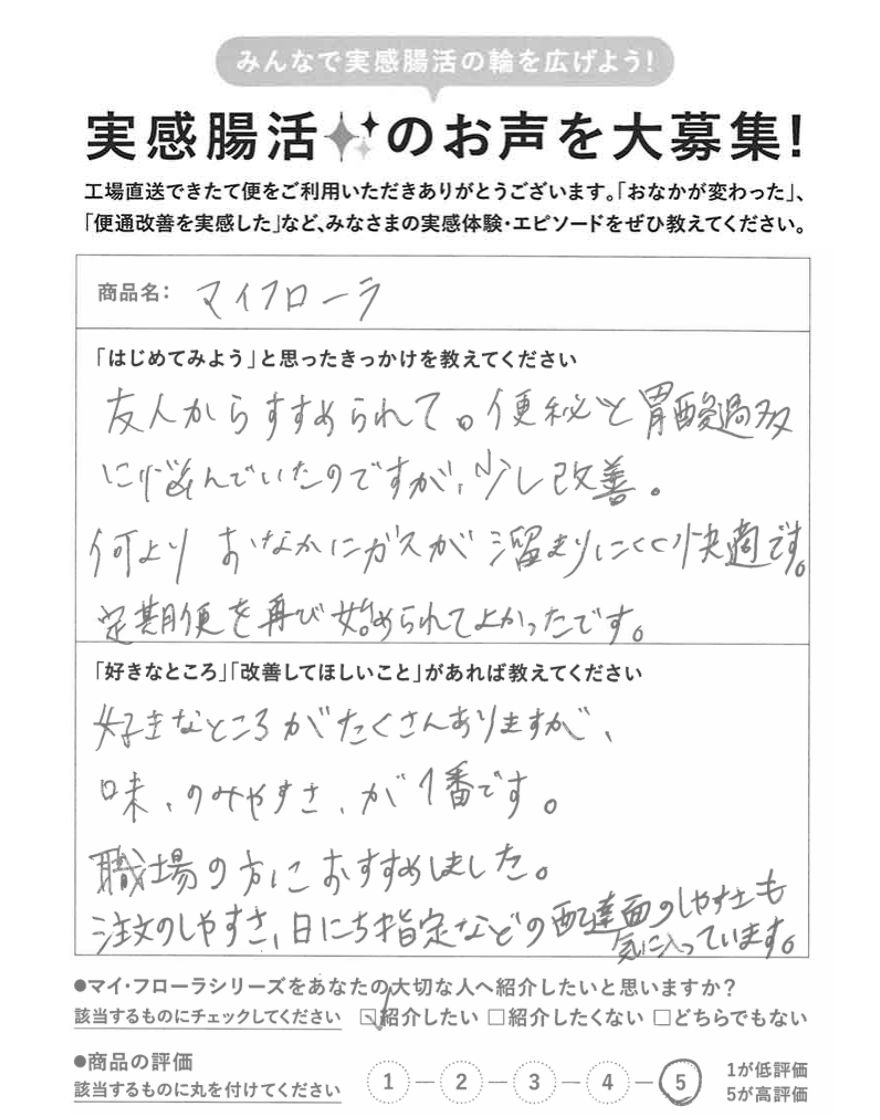 みんなで実感腸活の輪を広げよう!
実感腸活のお声を大募集!
工場直送できたて便をご利用いただきありがとうございます。「おなかが変わった」、
「便通改善を実感した」など、みなさまの実感体験・エピソードをぜひ教えてください。
商品名: マイフローラ
「はじめてみよう」と思ったきっかけを教えてください
友人からすすめられて。便秘と胃酸過多
に悩んでいたのですが、少し改善。
何より おなかにガスが溜まりにくく快適です。
定期便を再び始められてよかったです。
「好きなところ」「改善してほしいこと」があれば教えてください
好きなところがたくさんありますが、
味、のみやすさ、が1番です。
職場の方におすすめしました。
注文のしやすさ、日にち指定などの配達面のしやすさも
気に入っています。
●マイ・フローラシリーズをあなたの大切な人へ紹介したいと思いますか?
該当するものにチェックしてください ☑紹介したい □紹介したくない □どちらでもない
●商品の評価
該当するものに丸を付けてください
1 — 2 — 3 — 4 — 5
1が低評価
5が高評価